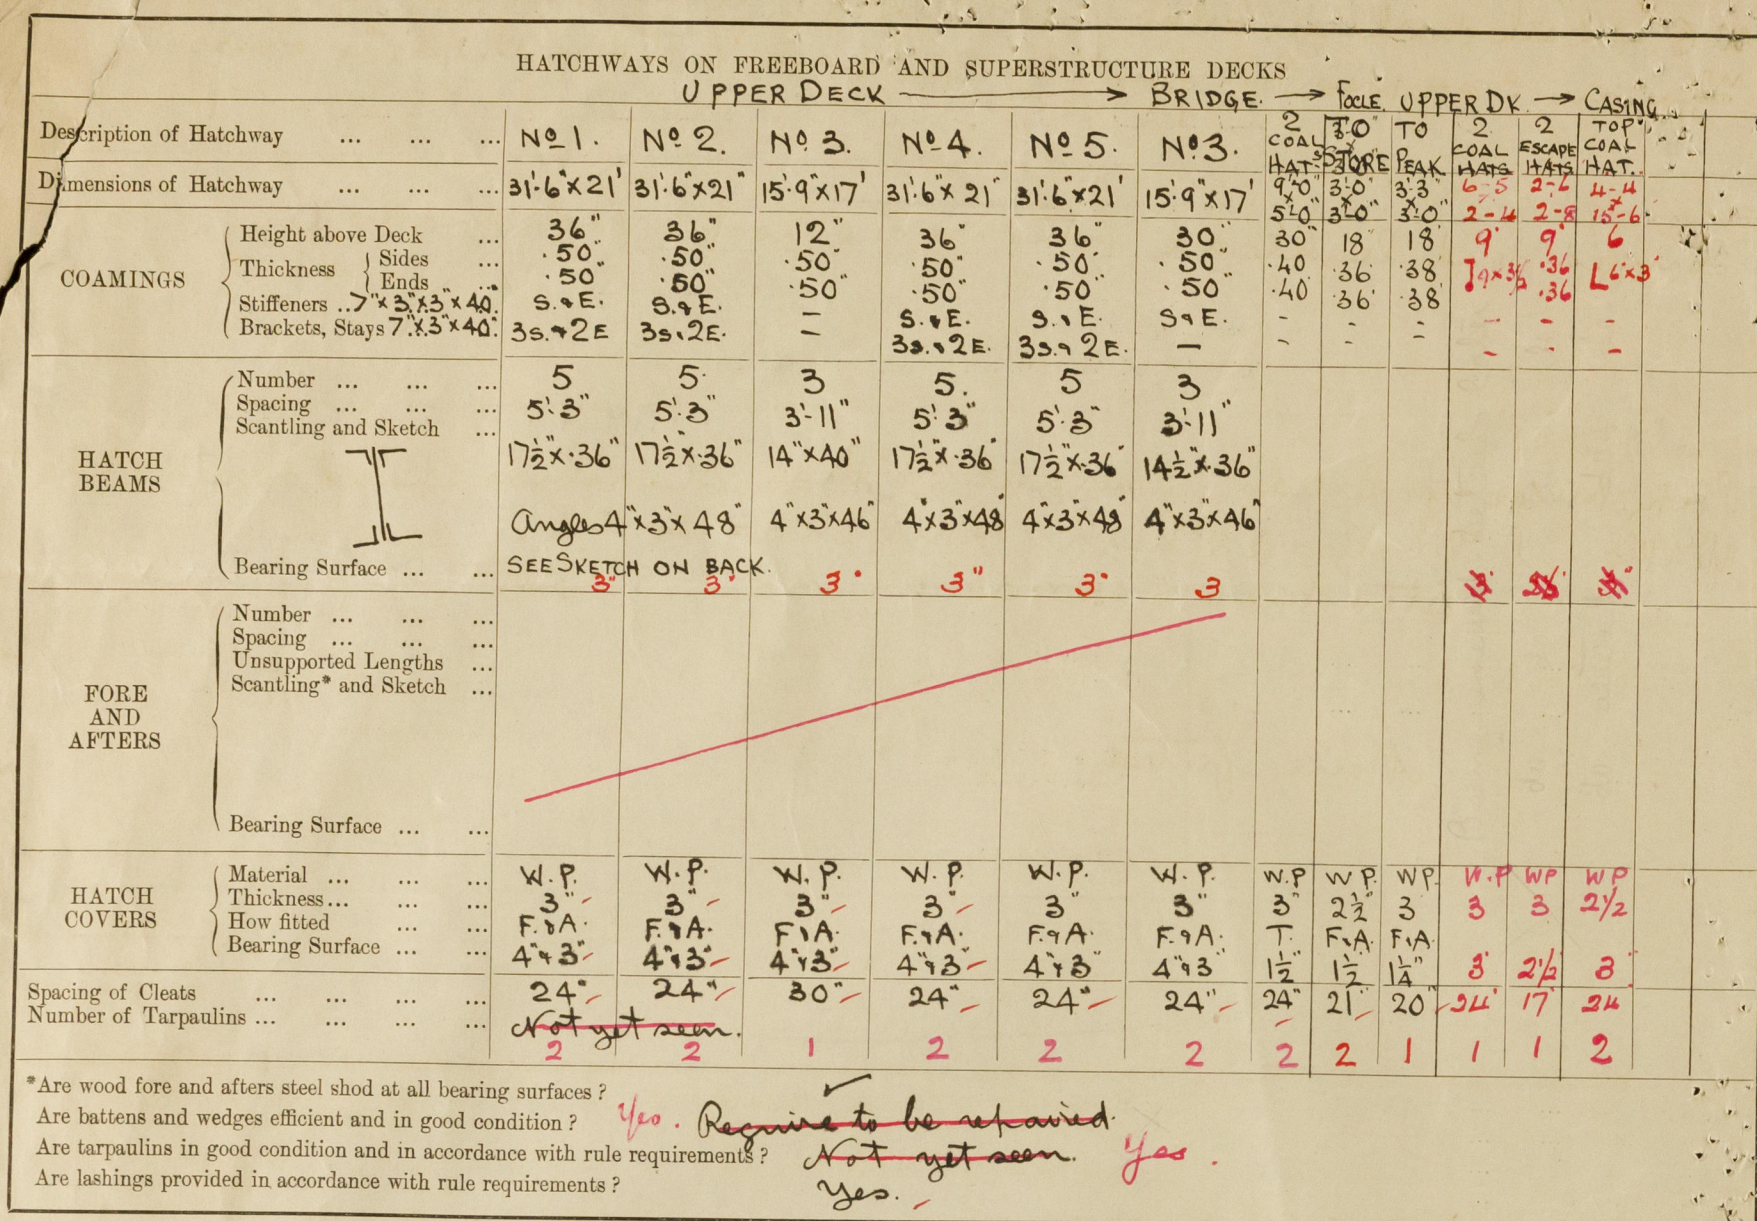 HATCHWAYS ON FREEBOARD AND SUPERSTRUCTURE DECKS
UPPER DECK → BRIDGE. → FOCLE. UPPER DK. → CASING
Description of Hatchway ... ... ... No 1. No 2. No 3. No 4. No 5. No 3. 2 COAL HATS TO STORE TO PEAK 2 COAL HATS 2 ESCAPE HATS TOP COAL HAT.
Dimensions of Hatchway ... ... ... 31'.6"×21' 31'.6"×21" 15'.9"×17' 31'.6"×21' 31'.6"×21' 15'.9"×17' 9'.0"×5'.0" 3'.0"×3'.0" 3'.3"×3'.0" 6-5 2-4 2-6 2-8 4-4×15-6
COAMINGS
Height above Deck ... 36" 36" 12" 36" 36" 30" 30" 18" 18" 9" 9" 6
Thickness Sides ... .50" .50" .50" .50" .50" .50" .40 .36 .38 .36 L 6"×3"
Ends ... .50" .50" .50" .50" .50" .50" .40 .36 .38 .36
Stiffeners .. 7"×3"×3"×.40 S.&E. S.&E. – S.&E. S.&E. S&E. - - - - - -
Brackets, Stays 7"×3"×40" 3S.&2E 3S.&2E. – 3S.&2E. 3S.&2E. – - - - - - -
HATCH BEAMS
Number ... ... ... 5 5 3 5. 5 3
Spacing ... ... ... 5'.3" 5'.3" 3'-11" 5'.3" 5'.3" 3'-11"
Scantling and Sketch ... 17½"×.36" 17½"×.36" 14"×40" 17½"×.36" 17½"×.36" 14½"×.36"
Angles 4"×3"×48" 4"×3"×46" 4×3×48 4"×3"×48 4"×3"×46"
Bearing Surface ... ... SEE SKETCH ON BACK.
3" 3" 3" 3" 3" 3
FORE AND AFTERS
Number ... ... ...
Spacing ... ... ...
Unsupported Lengths ...
Scantling* and Sketch ...
Bearing Surface ... ...
HATCH COVERS
Material ... ... ... W.P. W.P. W.P. W.P. W.P. W.P. W.P W P. WP. W.P WP WP
Thickness ... ... ... 3" 3" 3" 3" 3" 3" 3" 2½ 3 3 3 2½
How fitted ... ... F.&A. F.&A. F&A. F.&A. F.&A. F.&A. T. F.&A. F.&A.
Bearing Surface ... ... 4"&3" 4"&3" 4"&3" 4"&3" 4"&3" 4"&3 1½" 1½" 1¼" 3" 2½ 3
Spacing of Cleats ... ... ... ... 24" 24" 30" 24" 24" 24" 24" 21" 20" 24" 17" 24
Number of Tarpaulins ... ... ... ... Not yet seen.
2 2 1 2 2 2 2 2 1 1 1 2
*Are wood fore and afters steel shod at all bearing surfaces ? ✓
Are battens and wedges efficient and in good condition ? Yes. Require to be repaired.
Are tarpaulins in good condition and in accordance with rule requirements ? Not yet seen. Yes.
Are lashings provided in accordance with rule requirements ? Yes.